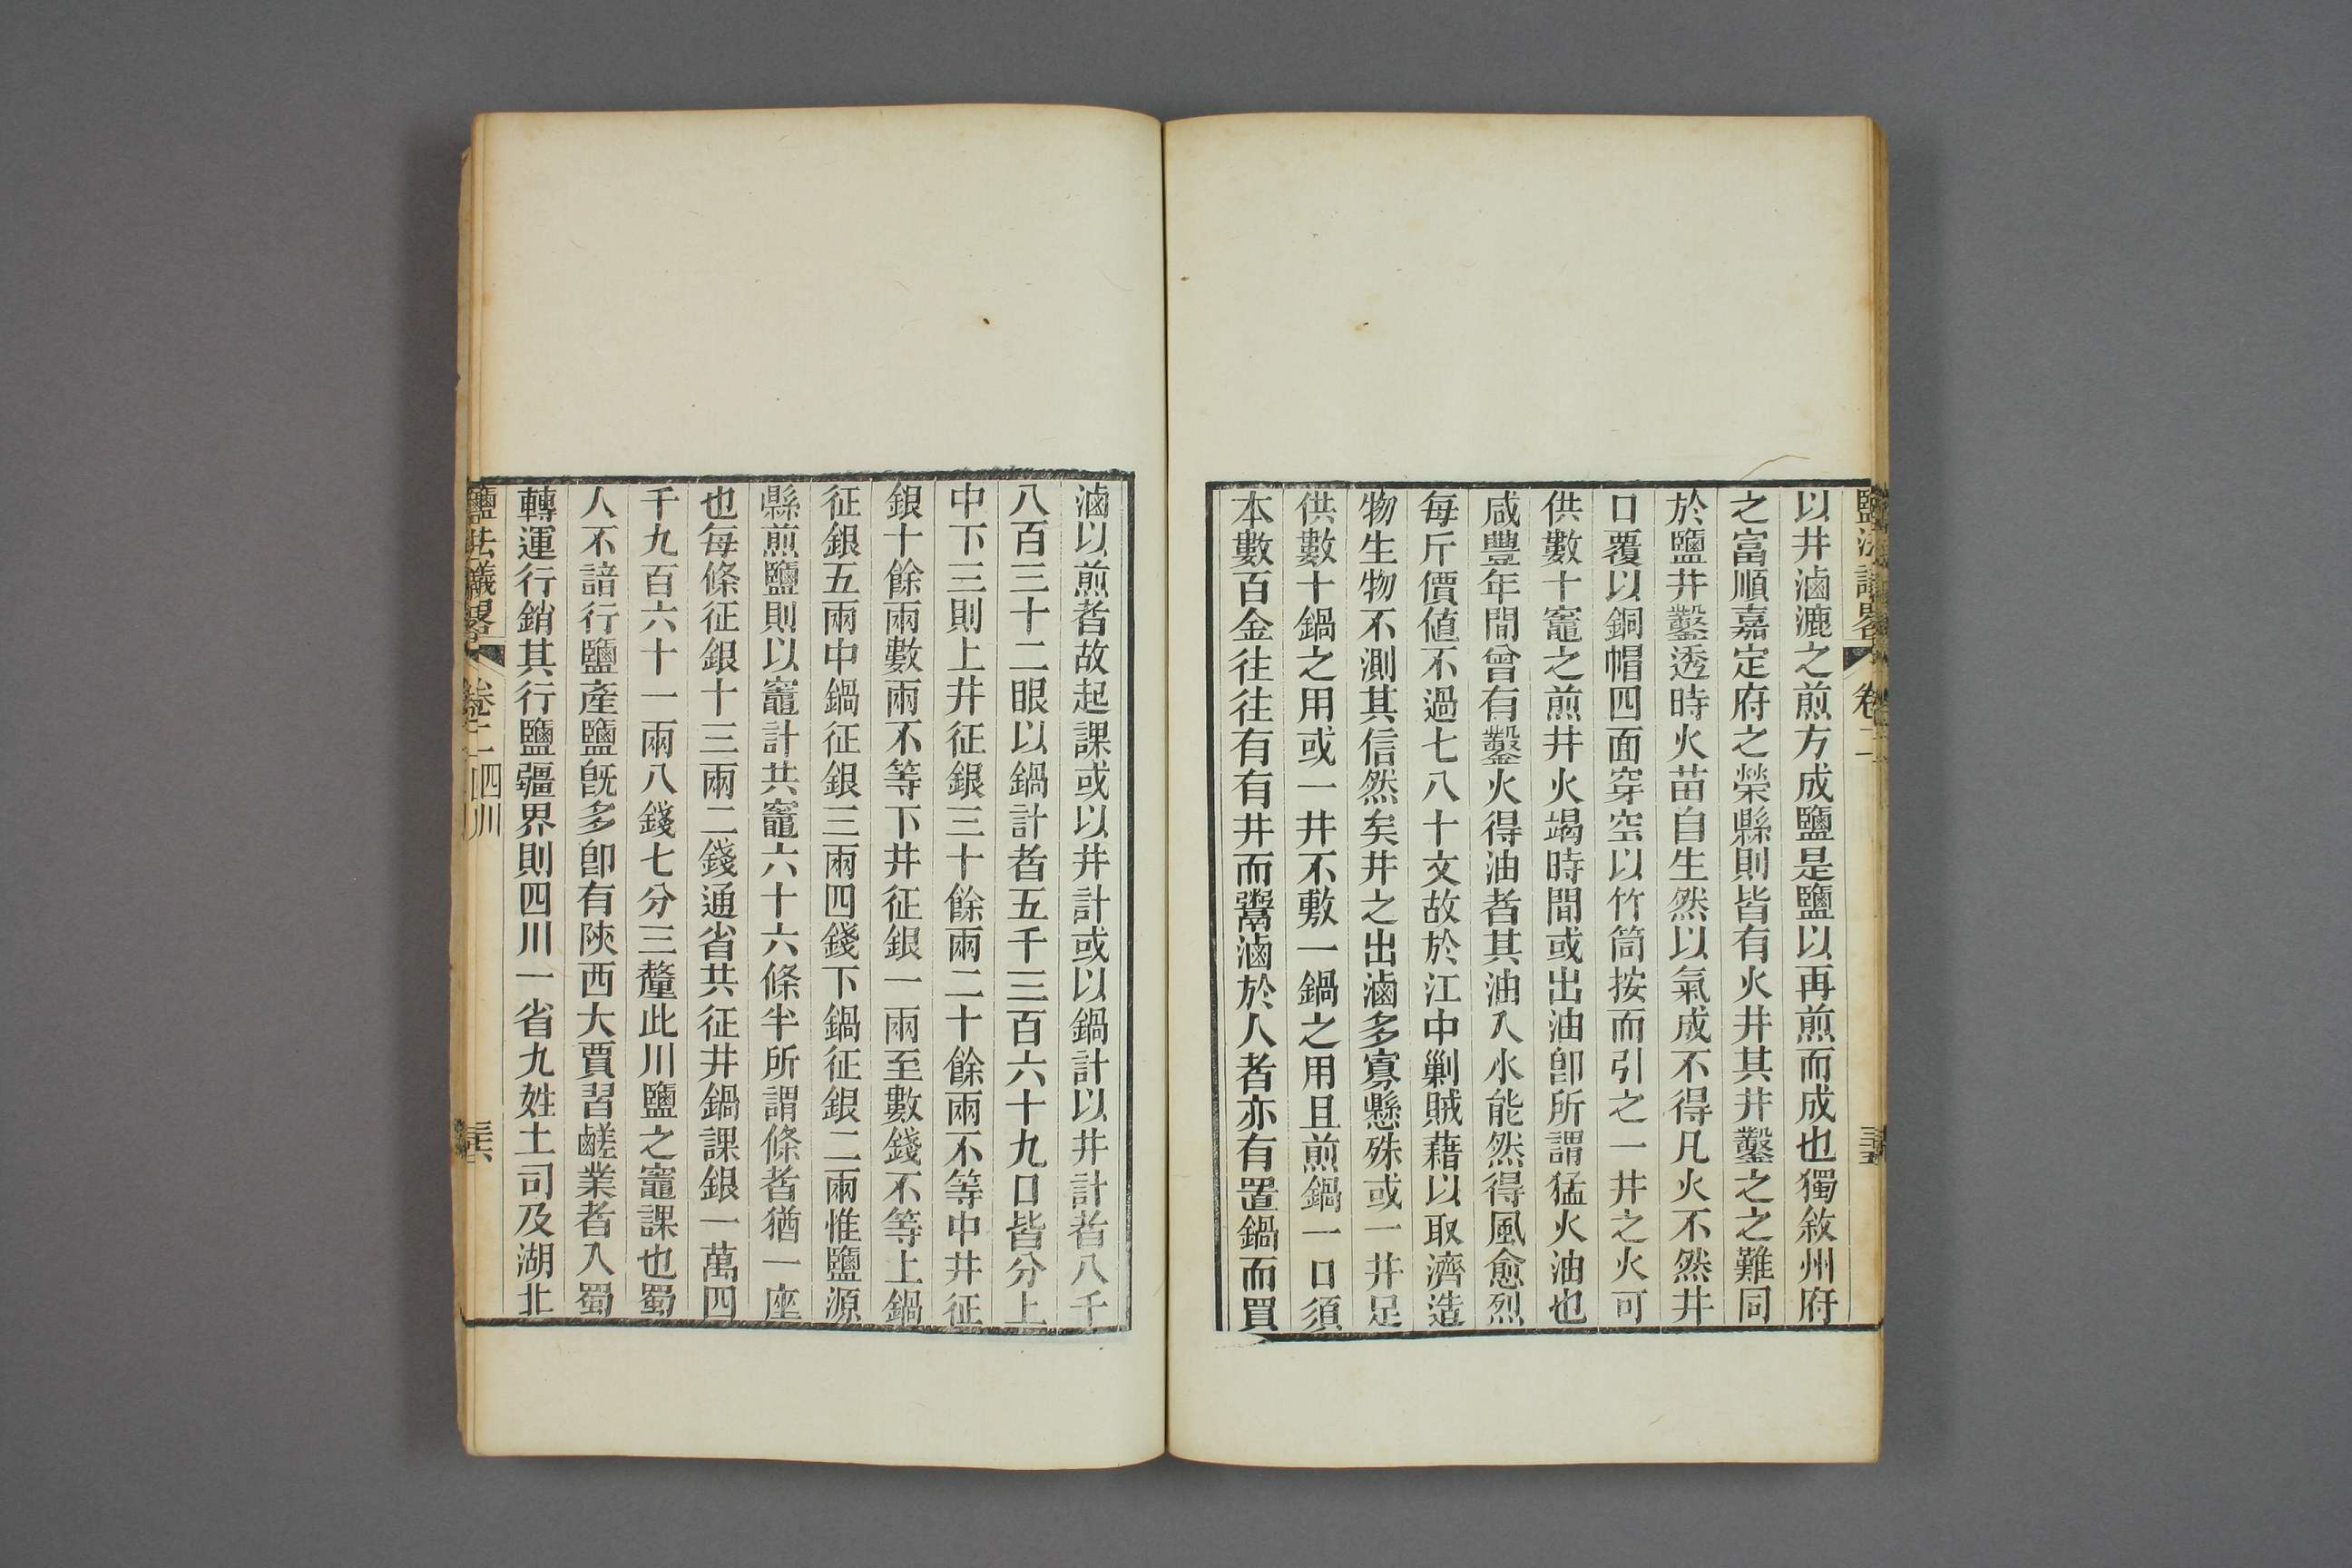 鹽法議畧
卷二
三十五
以井滷漉之煎方成鹽是鹽以再煎而成也獨敘州府
之富順嘉定府之榮縣則皆有火井其井鑿之之難同
於鹽井鑿透時火苗自生然以氣成不得凡火不然井
口覆以銅帽四面穿空以竹筒按而引之一井之火可
供數十竈之煎井火竭時間或出油卽所謂猛火油也
咸豐年間曾有鑿火得油者其油入水能然得風愈烈
每斤價値不過七八十文故於江中剿賊藉以取濟造
物生物不測其信然矣井之出滷多寡懸殊或一井足
供數十鍋之用或一井不敷一鍋之用且煎鍋一口須
本數百金往往有有井而鬻滷於人者亦有置鍋而買
滷以煎者故起課或以井計或以鍋計以井計者八千
八百三十二眼以鍋計者五千三百六十九口皆分上
中下三則上井征銀三十餘兩二十餘兩不等中井征
銀十餘兩數兩不等下井征銀一兩至數錢不等上鍋
征銀五兩中鍋征銀三兩四錢下鍋征銀二兩惟鹽源
縣煎鹽則以竈計共竈六十六條半所謂條者猶一座
也每條征銀十三兩二錢通省共征井鍋課銀一萬四
千九百六十一兩八錢七分三釐此川鹽之竈課也蜀
人不諳行鹽產鹽旣多卽有陝西大賈習鹺業者入蜀
轉運行銷其行鹽疆界則四川一省九姓土司及湖北
鹽法議畧
卷二 四川
三十六